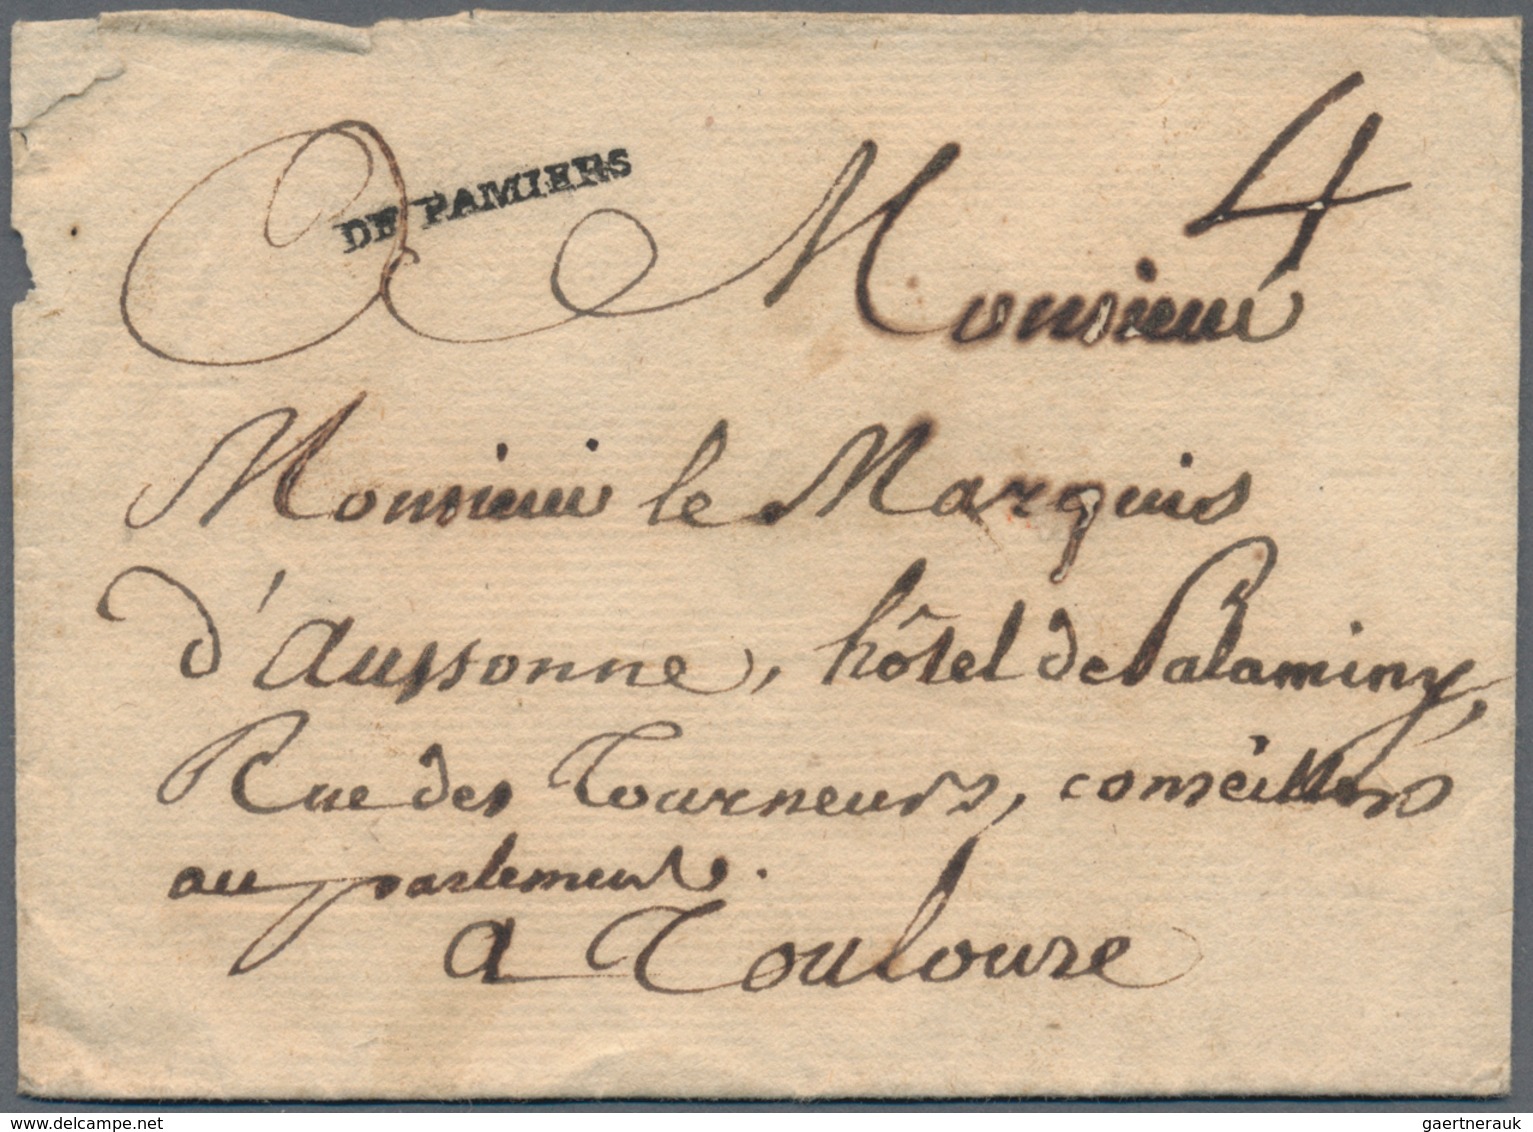 4
DE PAMIERS
Monsieur
Monsieur le Marquis
d'Aussonne, hôtel de Palaminy,
Rue des Tourneurs, conseillers
au parlement.
a Toulouse
gaertnerauk @ delcampe.net